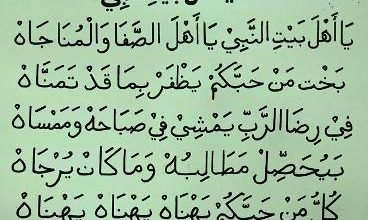 يَا أَهْلَ بَيْتِ النَّبِيْ يَا أَهْلَ الصَّفَا وَالْمُنَاجَاهْ
بَخْت مَنْ حَبَّكُمْ يَظْفَرْ بِمَا قَدْ تَمَنَّاهْ
فِيْ رِضَا الرَّبِّ يَمْشِيْ فِيْ صَبَاحَهْ وَمَمْسَاهْ
بَيُحَصِّلْ مَطَالِبُهْ وَمَا كَانْ يُرْجَاهْ
كُلُّ مَنْ حَبَّكُمْ يَهْنَاهْ يَهْنَاهْ يَهْنَاهْ